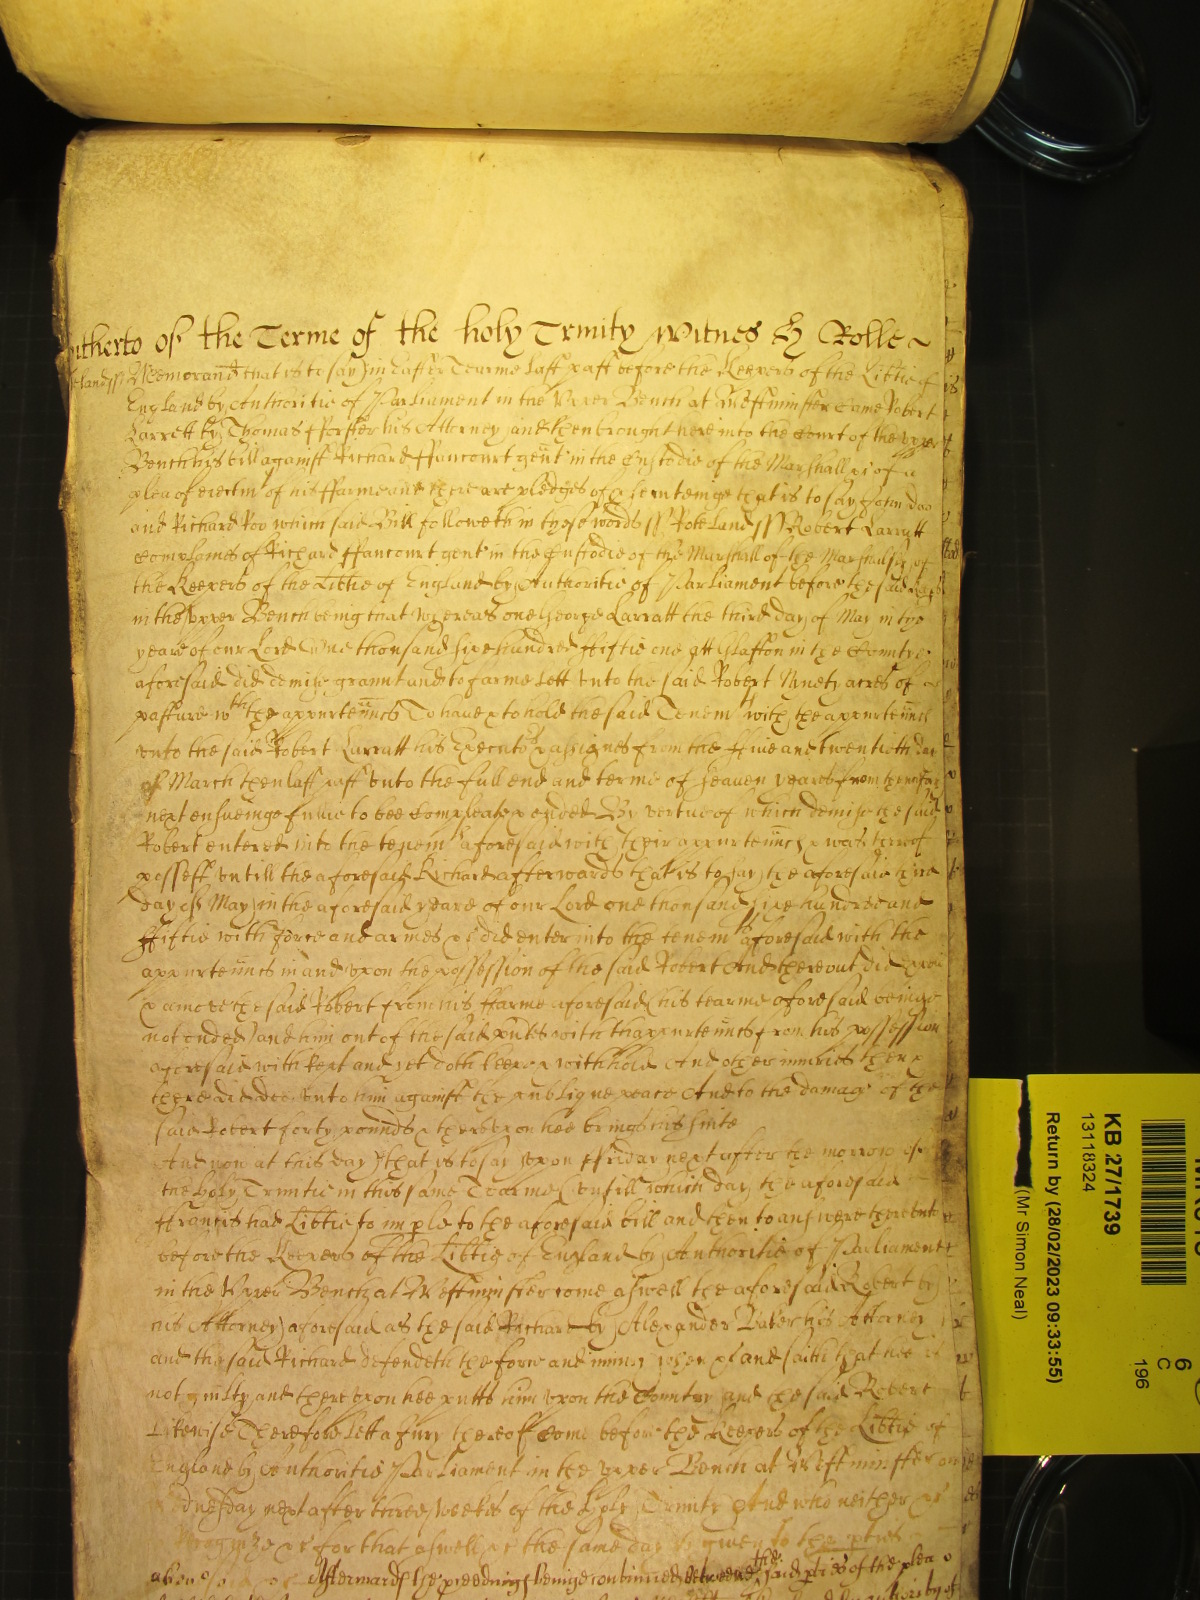 itherto of the Terme of the holy Trinity Witnes H Rolle
eland ss Memorand that is to say) in Easter Tearme last past before the Keepers of the Libtie of
England by Authoritie of Parliament in the Upper Bench at Westminster Came Robert
Larrett by Thomas fforster his Attorney and then brought here into the Court of the upper
Bench his bill against Richard ffancourt gent in the Custodie of the Marshall &c of a
plea of eiectm of his ffarme and there are pledges of that is to say John Doo
and Richard Roo which said Bill followeth in these words ss Roteland ss Robert Larratt
complaines of Richard ffancourt gent in the Custodie of the Marshall of the Marshalsey of
the Keepers of the Libtie of England by Authoritie of Parliament before the said
in the upper Bench being that whereas one George Larratt the third day of May in the
yeare of our Lord One thousand sixe hundred ffiftie one att Glaston in the Countye
aforesaid did demise graunt and to farme lett unto the said Robert Ninety acres of
pasture wth the appurtenncs To have & to hold the said Tenemts with the appurtenncs
unto the said Robert Larratt his Executors & assignes from the ffive and twentieth day
of March then last past unto the full end and terme of seaven yeares from thence
next ensueinge fullie to bee compleate & ended By vertue of which demise the said
Robert entered into the tenemts aforesaid with their appurtenncs & was thereof
possest untill the aforesaid Richard afterwards that is to say the aforesaid third
day of May in the aforesaid yeare of our Lord one thousand sixe hundred and
ffiftie with force and armes &c did enter into the tenemts aforesaid with the
appurtenncs in and upon the possession of the said Robert And thereout did
& amove the said Robert from his ffarme aforesaid (his tearme aforesaid beinge
not ended) and him out of the said with thappurtenncs from his possession
aforesaid with kept and yet doth keepe & withhold And other iniuries then &
there did doe unto him against the publique peace And to the damage of the
said Robert forty pounds & thereupon hee brings his suite
And now at this day (that is to say upon ffriday next after the morrow of
the holy Trinitie in this same Tearme (untill which day the aforesaid
ffrancis had Libtie to imple to the aforesaid bill and then to answere thereunto
before the Keepers of the Libtie of England by Authoritie of Parliament
in the Upper Bench at Westminster come aswell the aforesaid Robert by
his Attorney aforesaid as the said Richard by Alexander his Attorney
and the said Richard defendeth the force and iniury when &c and saith that hee is
not guilty and thereupon hee putts him upon the Country and the said Robert
Likewise Therefore lett a Jury thereof come before the Keepers of the Libtie of
England by Authoritie Parliament in the upper Bench at Westminster on
dnesday next after three weekes of the holy Trinity And who neither &c
&c for that aswell &c the same day is given to the pties
Afterwards the proceedings beinge continued betweene the said pties of the plea
KB 27/1739
13118324
Return by (28/02/2023 09:33:55)
(Mr Simon Neal)
6
C
196